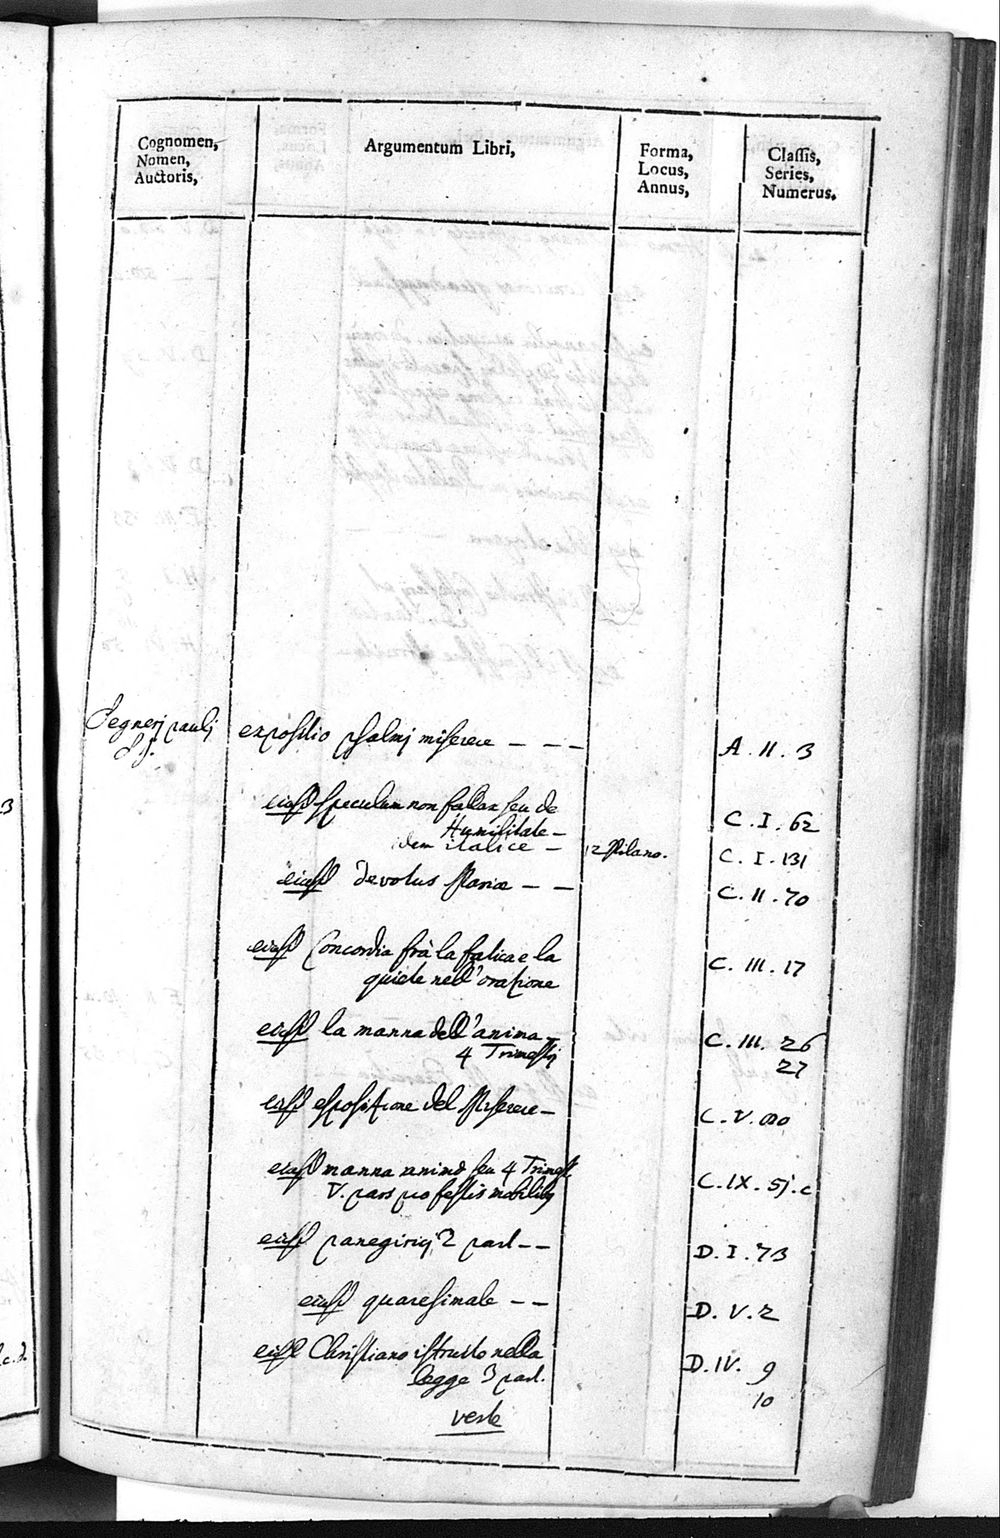 Cognomen,
Nomen,
Auctoris,
Argumentum Libri,
Forma,
Locus,
Annus,
Classis,
Series,
Numerus.
Segnerj paulj
S. J.
expositio psalmj miserere - - -
A. II. 3
eiusd speculum non fallax seu de
Humilitate -
C. I. 62
idem italice -
12 Milano.
C. I. 131
eiusd devotus Mariæ - -
C. II. 70
eiusd Concordia frà la fatica e la
quiete nell' oratione
C. III. 17
eiusd la manna dell' anima -
4 Trimestj
C. III. 26
27
eiusd espositione del Miserere -
C. V.
eiusd manna animæ seu 4 Trimest
V. pars pro festis mobilibus
C. IX. 51. c
eiusd panegirici 2 part - -
D. I. 73
eiusd quaresimale - -
D. V. 2
eiusd Christiano istrutto nella
legge 3 part.
D. IV. 9
10
verte
3
c. d.